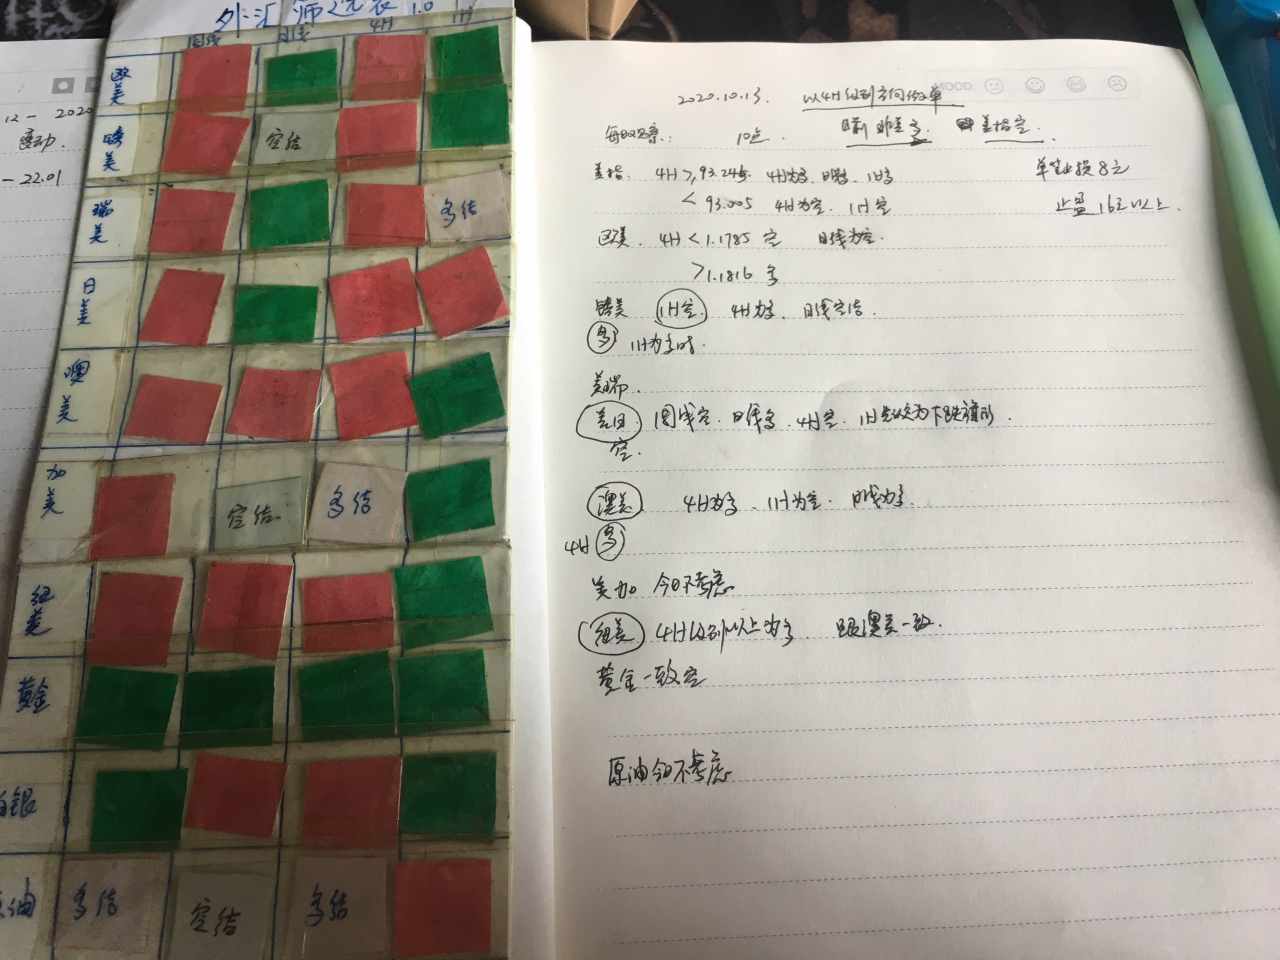 外汇筛选表 1.0
周线 日线 4H 1H
欧美
镑美 空结
瑞美 多结
日美
澳美
加美 空结 多结
纽美
黄金
白银
原油 多结 空结 多结
12 - 2020
运动.
- 22.01
MOOD
2020.10.13. 以4H级别方向做单
每日观察: 10点.
美指. 4H > 93.245 4H为多.
单笔止损8元
< 93.005 4H为空. 1H空
止盈16元以上.
欧美. 4H < 1.1785 空 日线为空.
> 1.1816 多
镑美 1H空. 4H为多. 日线空结.
多 1H为多时.
美瑞.
美日. 周线空. 日线多. 4H空. 1H
空.
澳美. 4H为多. 1H为空. 日线为多.
4H 多
美加 今日不考虑
纽美 4H级别以上为多 跟澳美一致.
黄金一致空
原油今日不考虑